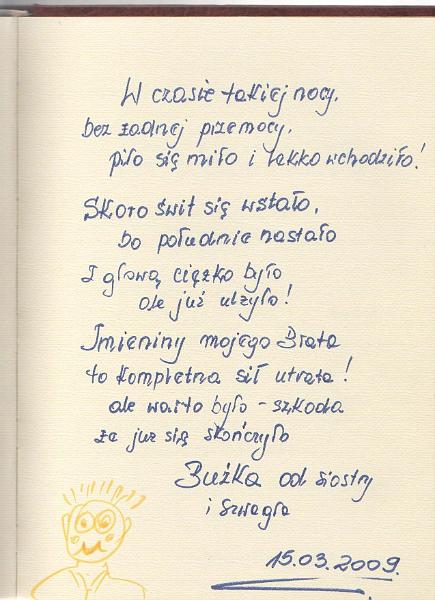 W czasie takiej nocy,
bez żadnej przemocy,
piło się miło i lekko wchodziło!
Skoro świt się wstało,
bo południe nastało
I głową ciężko było
ale już ulżyło!
Imieniny mojego Brata
to kompletna sił utrata!
ale warto było - szkoda
że już się skończyło
Buźka od siostry
i szwagra
15.03.2009.